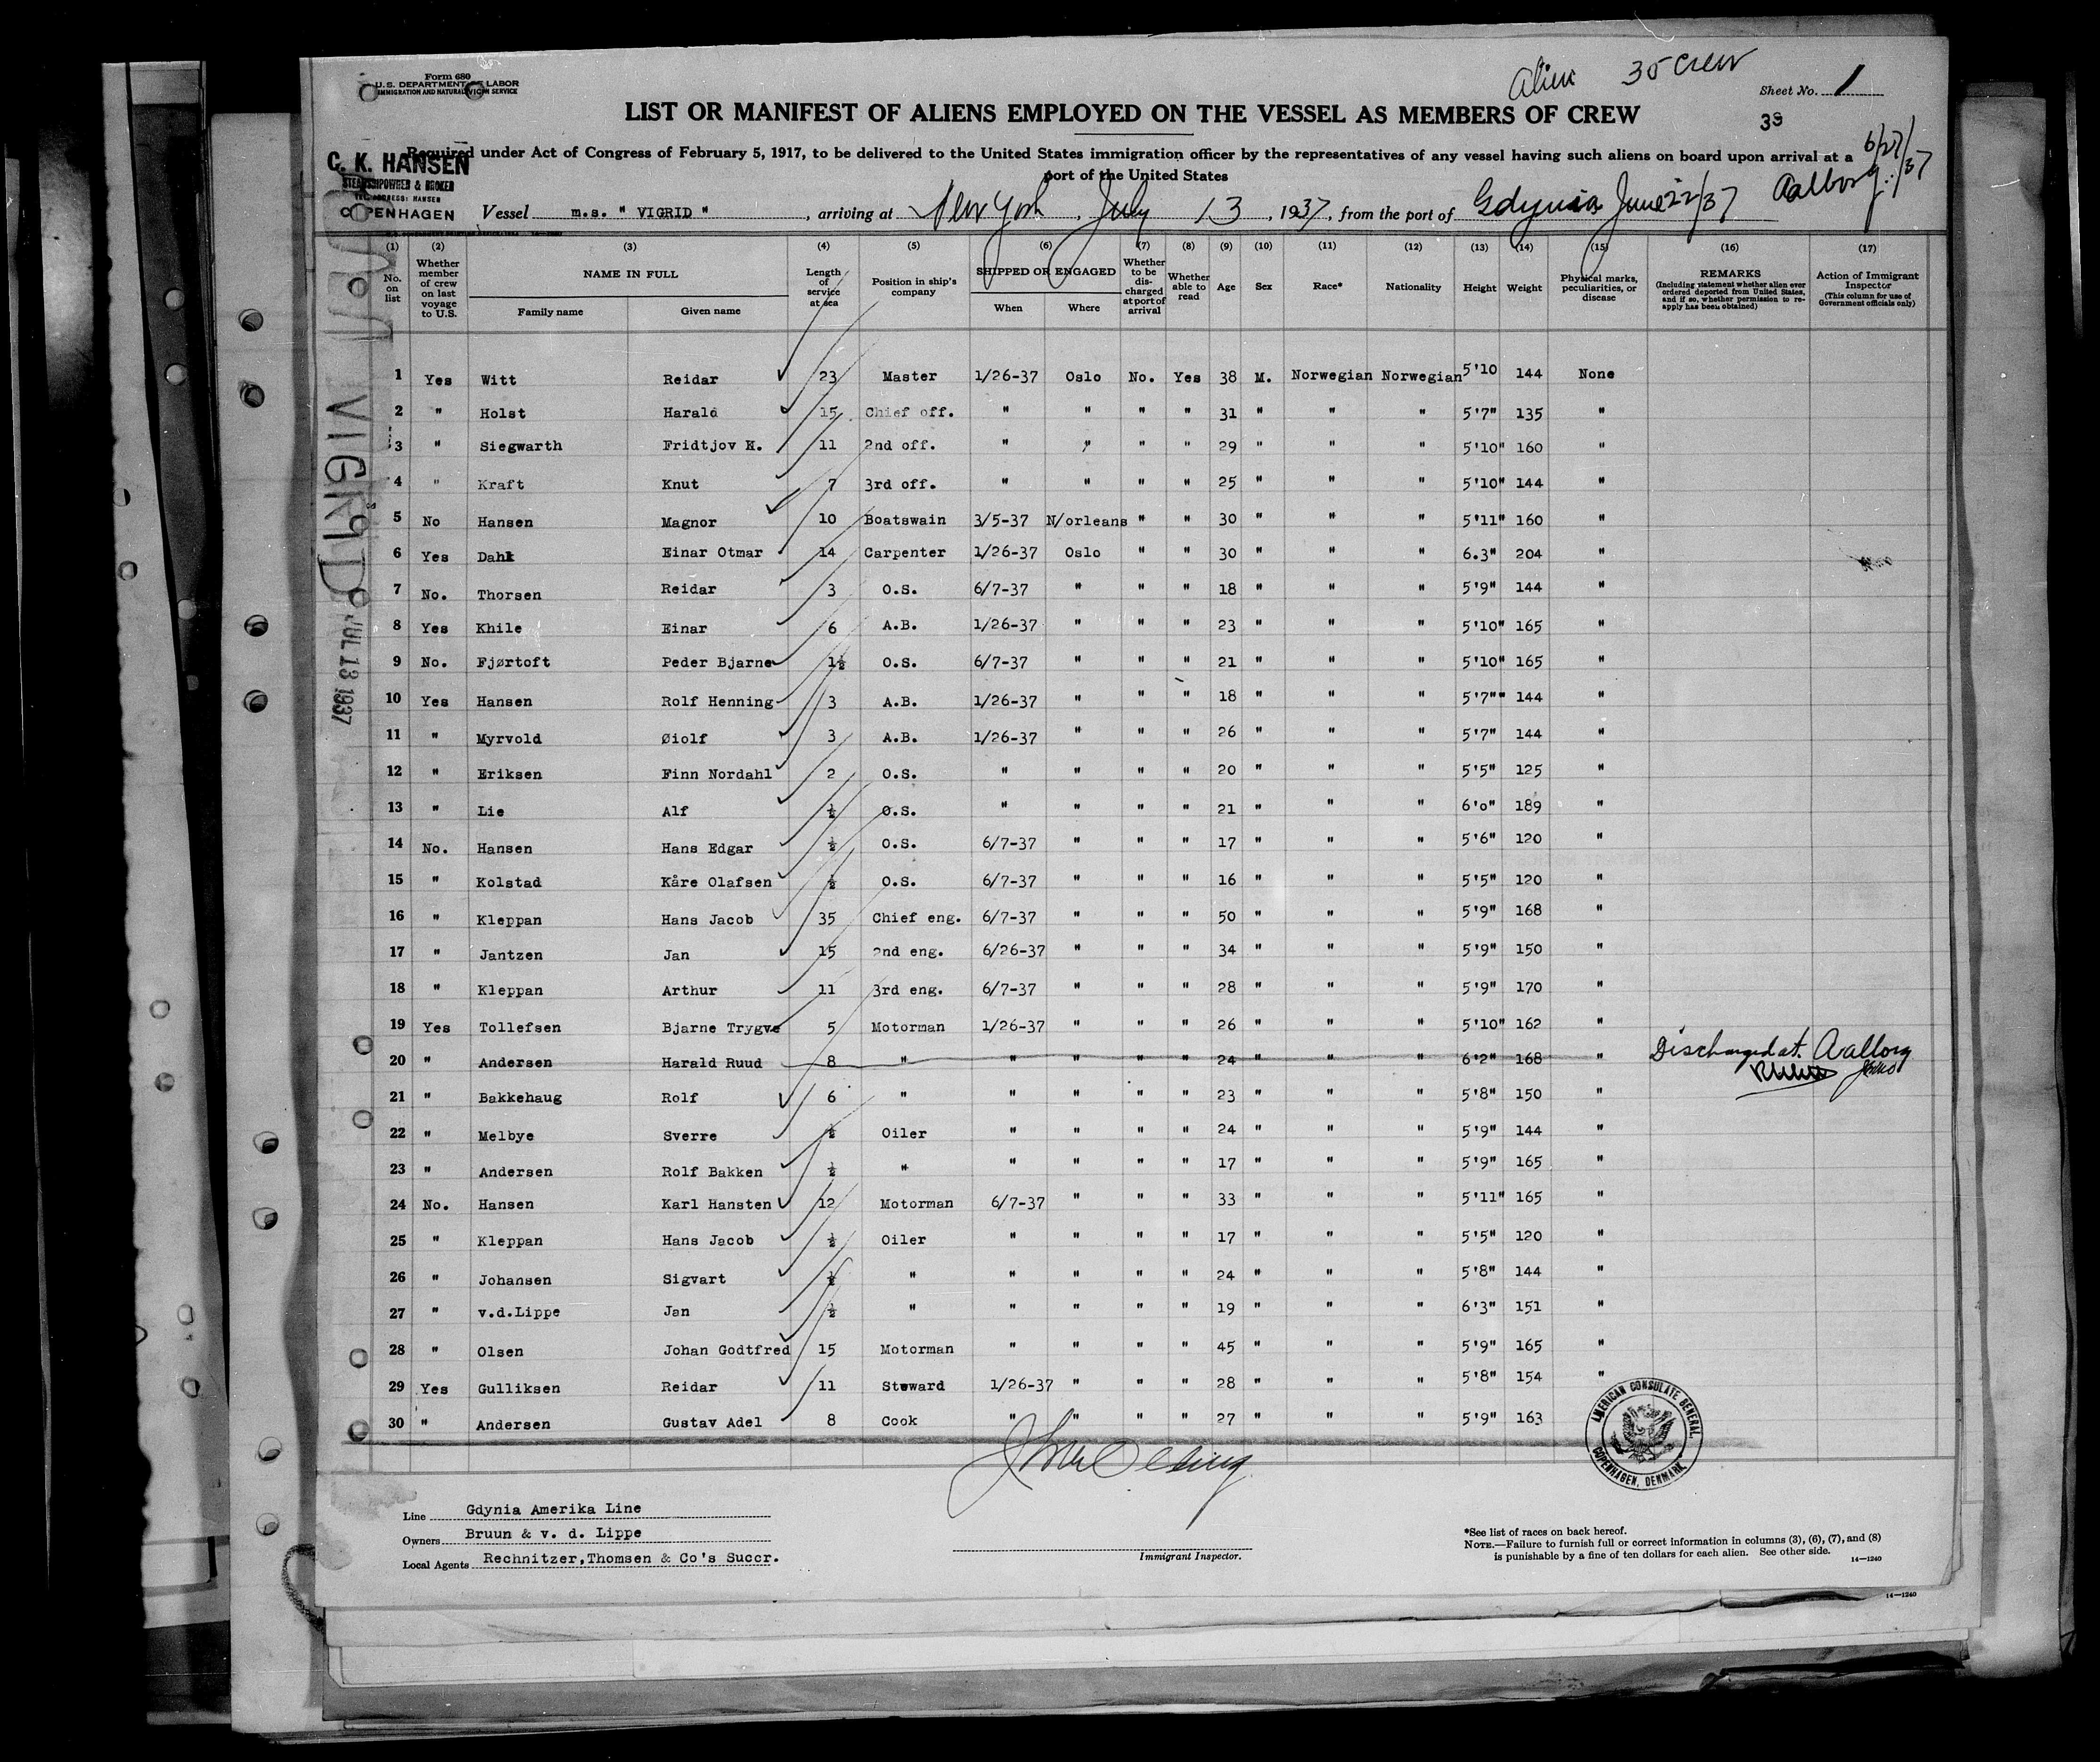 Form 680
U.S. DEPARTMENT OF LABOR
IMMIGRATION AND NATURALIZATION SERVICE
Alien 35 Crew
Sheet No. 1
38
LIST OR MANIFEST OF ALIENS EMPLOYED ON THE VESSEL AS MEMBERS OF CREW
Required under Act of Congress of February 5, 1917, to be delivered to the United States immigration officer by the representatives of any vessel having such aliens on board upon arrival at a
port of the United States
C. K. HANSEN
STEAMSHIPOWNER & BROKER
TEL. ADDRESS: HANSEN
COPENHAGEN
Vessel m.s. " VIGRID " , arriving at New York , July 13 , 1937 , from the port of Gdynia June 22/37 Aalborg: 6/27/37
(1) (2) (3) (4) (5) (6) (7) (8) (9) (10) (11) (12) (13) (14) (15) (16) (17)
No. on list | Whether member of crew on last voyage to U.S. | NAME IN FULL | Family name | Given name | Length of service at sea | Position in ship's company | SHIPPED OR ENGAGED | When | Where | Whether to be discharged at port of arrival | Whether able to read | Age | Sex | Race* | Nationality | Height | Weight | Physical marks, peculiarities, or disease | REMARKS (Including statement whether alien ever ordered deported from United States, and if so, whether permission to reapply has been obtained) | Action of Immigrant Inspector (This column for use of Government officials only)
1 Yes Witt Reidar 23 Master 1/26-37 Oslo No. Yes 38 M. Norwegian Norwegian 5'10 144 None
2 " Holst Harald 15 Chief off. " " " " 31 " " " 5'7" 135 "
3 " Siegwarth Fridtjov K. 11 2nd off. " " " " 29 " " " 5'10" 160 "
4 " Kraft Knut 7 3rd off. " " " " 25 " " " 5'10" 144 "
5 No Hansen Magnor 10 Boatswain 3/5-37 N/orleans " " 30 " " " 5'11" 160 "
6 Yes Dahl Einar Otmar 14 Carpenter 1/26-37 Oslo " " 30 " " " 6.3" 204 "
7 No. Thorsen Reidar 3 O.S. 6/7-37 " " " 18 " " " 5'9" 144 "
8 Yes Khile Einar 6 A.B. 1/26-37 " " " 23 " " " 5'10" 165 "
9 No. Fjørtoft Peder Bjarne 1½ O.S. 6/7-37 " " " 21 " " " 5'10" 165 "
10 Yes Hansen Rolf Henning 3 A.B. 1/26-37 " " " 18 " " " 5'7"" 144 "
11 " Myrvold Øiolf 3 A.B. 1/26-37 " " " 26 " " " 5'7" 144 "
12 " Eriksen Finn Nordahl 2 O.S. " " " " 20 " " " 5'5" 125 "
13 " Lie Alf ½ O.S. " " " " 21 " " " 6'o" 189 "
14 No. Hansen Hans Edgar ½ O.S. 6/7-37 " " " 17 " " " 5'6" 120 "
15 " Kolstad Kåre Olafsen ½ O.S. 6/7-37 " " " 16 " " " 5'5" 120 "
16 " Kleppan Hans Jacob 35 Chief eng. 6/7-37 " " " 50 " " " 5'9" 168 "
17 " Jantzen Jan 15 2nd eng. 6/26-37 " " " 34 " " " 5'9" 150 "
18 " Kleppan Arthur 11 3rd eng. 6/7-37 " " " 28 " " " 5'9" 170 "
19 Yes Tollefsen Bjarne Trygve 5 Motorman 1/26-37 " " " 26 " " " 5'10" 162 "
20 " Andersen Harald Ruud 8 " " " " " 24 " " " 6'2" 168 " Discharged at Aalborg
21 " Bakkehaug Rolf 6 " " " " " 23 " " " 5'8" 150 "
22 " Melbye Sverre ½ Oiler " " " " 24 " " " 5'9" 144 "
23 " Andersen Rolf Bakken ½ " " " " " 17 " " " 5'9" 165 "
24 No. Hansen Karl Hansten 12 Motorman 6/7-37 " " " 33 " " " 5'11" 165 "
25 " Kleppan Hans Jacob ½ Oiler " " " " 17 " " " 5'5" 120 "
26 " Johansen Sigvart ½ " " " " " 24 " " " 5'8" 144 "
27 " v.d.Lippe Jan ½ " " " " " 19 " " " 6'3" 151 "
28 " Olsen Johan Godtfred 15 Motorman " " " " 45 " " " 5'9" 165 "
29 Yes Gulliksen Reidar 11 Steward 1/26-37 " " " 28 " " " 5'8" 154 "
30 " Andersen Gustav Adel 8 Cook " " " " 27 " " " 5'9" 163
VIGRID
JUL 13 1937
AMERICAN CONSULATE GENERAL.
COPENHAGEN, DENMARK.
Line Gdynia Amerika Line
Owners Bruun & v. d. Lippe
Local Agents Rechnitzer,Thomsen & Co's Succr.
Immigrant Inspector.
*See list of races on back hereof.
NOTE.—Failure to furnish full or correct information in columns (3), (6), (7), and (8)
is punishable by a fine of ten dollars for each alien. See other side.
14—1240
14—1240